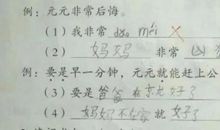 例：元元非常后悔。
（1）我非常 dǎo méi
（2）妈妈 非常 凶
例：要是早一分钟，元元就能赶上公
（3）要是爸爸在 就好了
（4）妈妈不 就好了